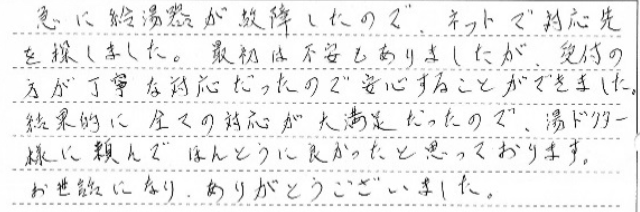 急に給湯器が故障したので、ネットで対応先
を探しました。最初は不安もありましたが、受付の
方が丁寧な対応だったので安心することができました。
結果的に全ての対応が大満足だったので、湯ドクター
様に頼んでほんとうに良かったと思っております。
お世話になり、ありがとうございました。